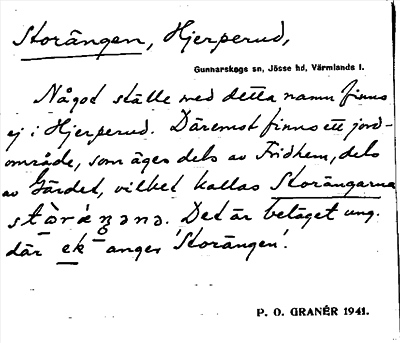 Storängen, Hjerperud,
Gunnarskogs sn, Jösse hd, Värmlands l.
Något ställe med detta namn finns
ej i Hjerperud. Däremot finns ett jord-
område, som äges dels av Fridhem, dels
av Gärdet, vilket kallas Storängarna
Det är beläget ung.
där ek anges 'Storängen'.
P. O. GRANÉR 1941.